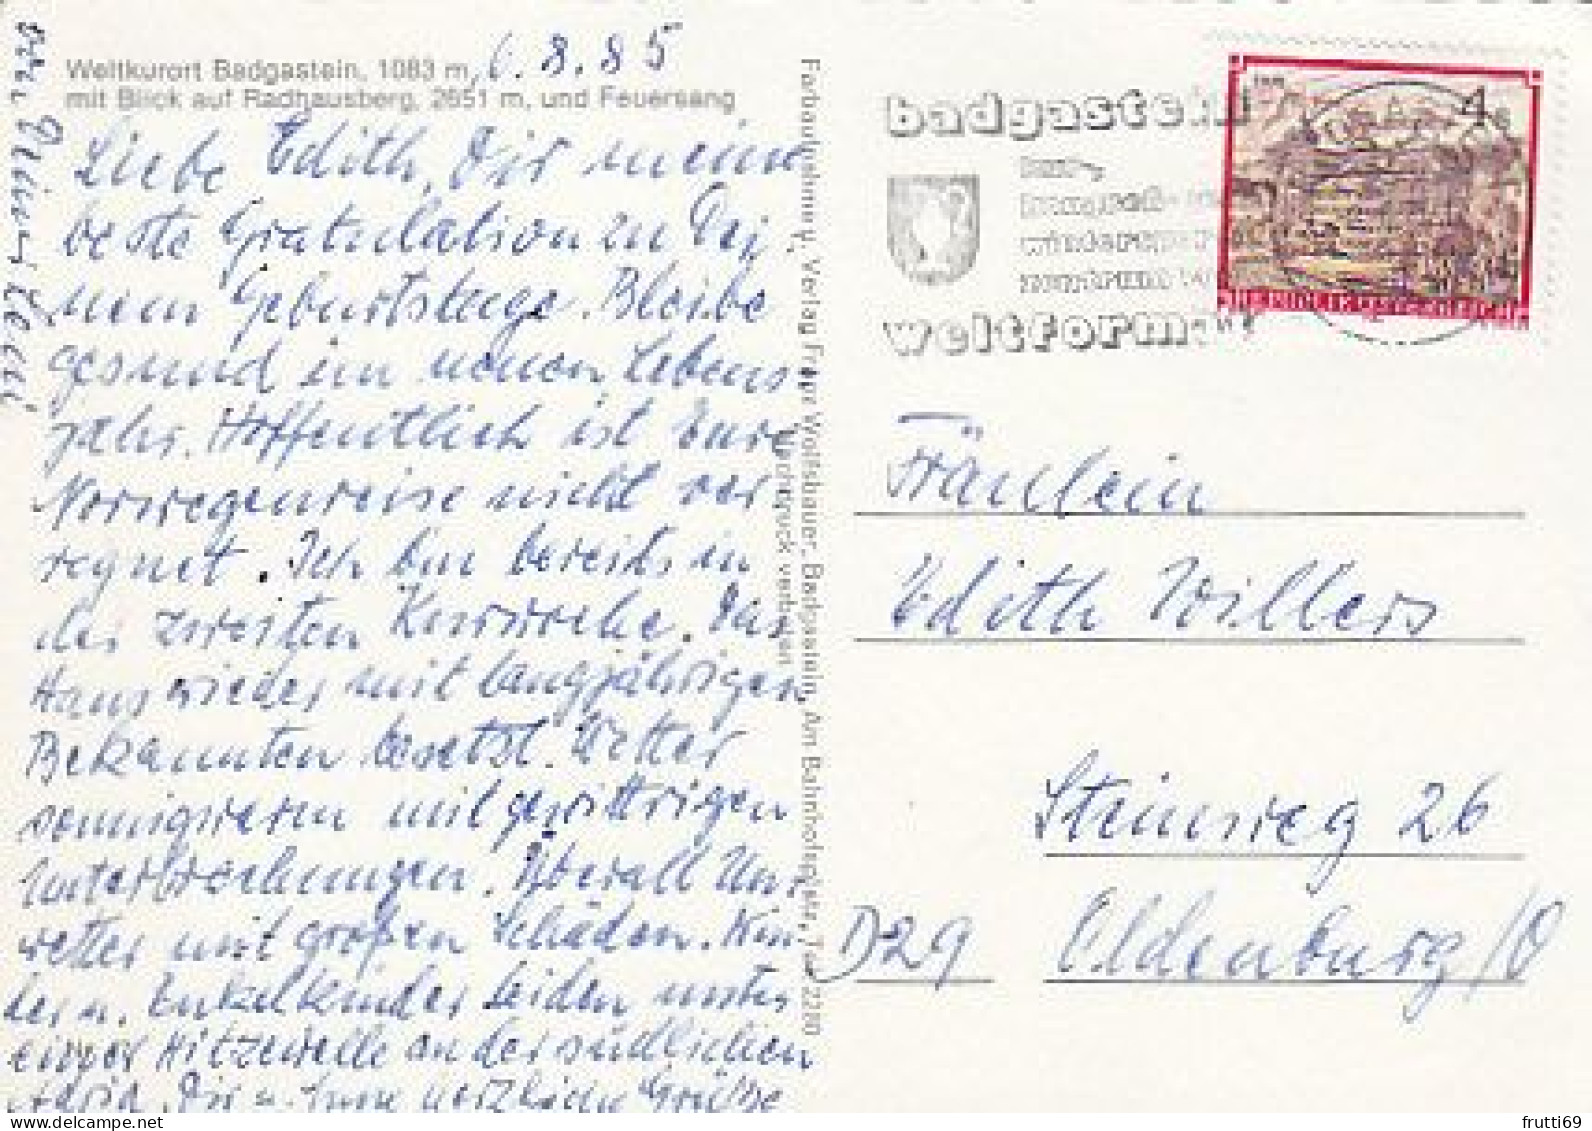 Weltkurort Badgastein, 1083 m,
mit Blick auf Radhausberg, 2651 m, und Feuersang
6.8.85
Liebe Edith, Dir meine
beste Gratulation zu Dei-
nem Geburtstage. Bleibe
gesund im neuen Lebens-
jahr. Hoffentlich ist Eure
Norwegenreise nicht ver
regnet. Ich bin bereits in
der zweiten Kurwoche. Das
Haus wieder mit langjährigen
Bekannten besetzt. Wetter
sonnigwarm mit gewittrigen
Unterbrechungen. Überall Un-
wetter mit großen Schäden. Kin-
der u. Enkelkinder leiden unter
einer Hitzewelle an der südlichen
Adria. Dir u. herzliche Grüße
Farbaufnahme, Verlag Franz Wolfsbauer, Badgastein, Am Bahnhofsplatz, Tel. 2220
Nachdruck verboten
badgastein
kur-,
kongreß-
wintersport
zentrum
weltformat
4
REPUBLIK ÖSTERREICH
Fräulein
Edith Willers
Steinweg 26
D29 Oldenburg/O
frutti69